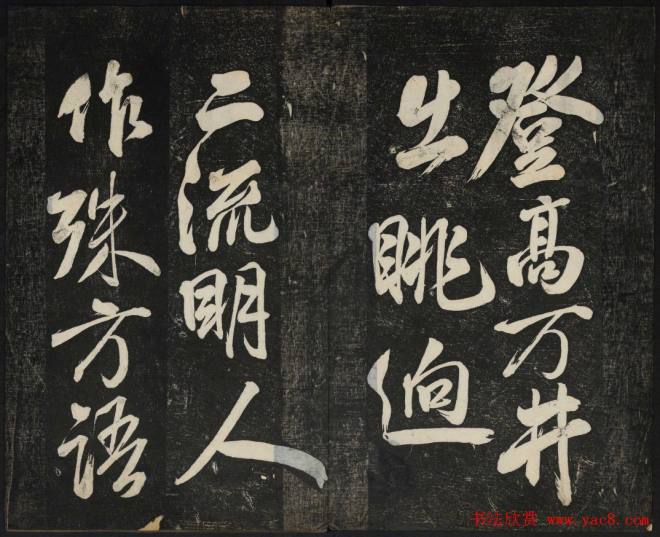 登高万井
出眺迥
二流明人
作殊方语
书法欣赏 www.yac8.com